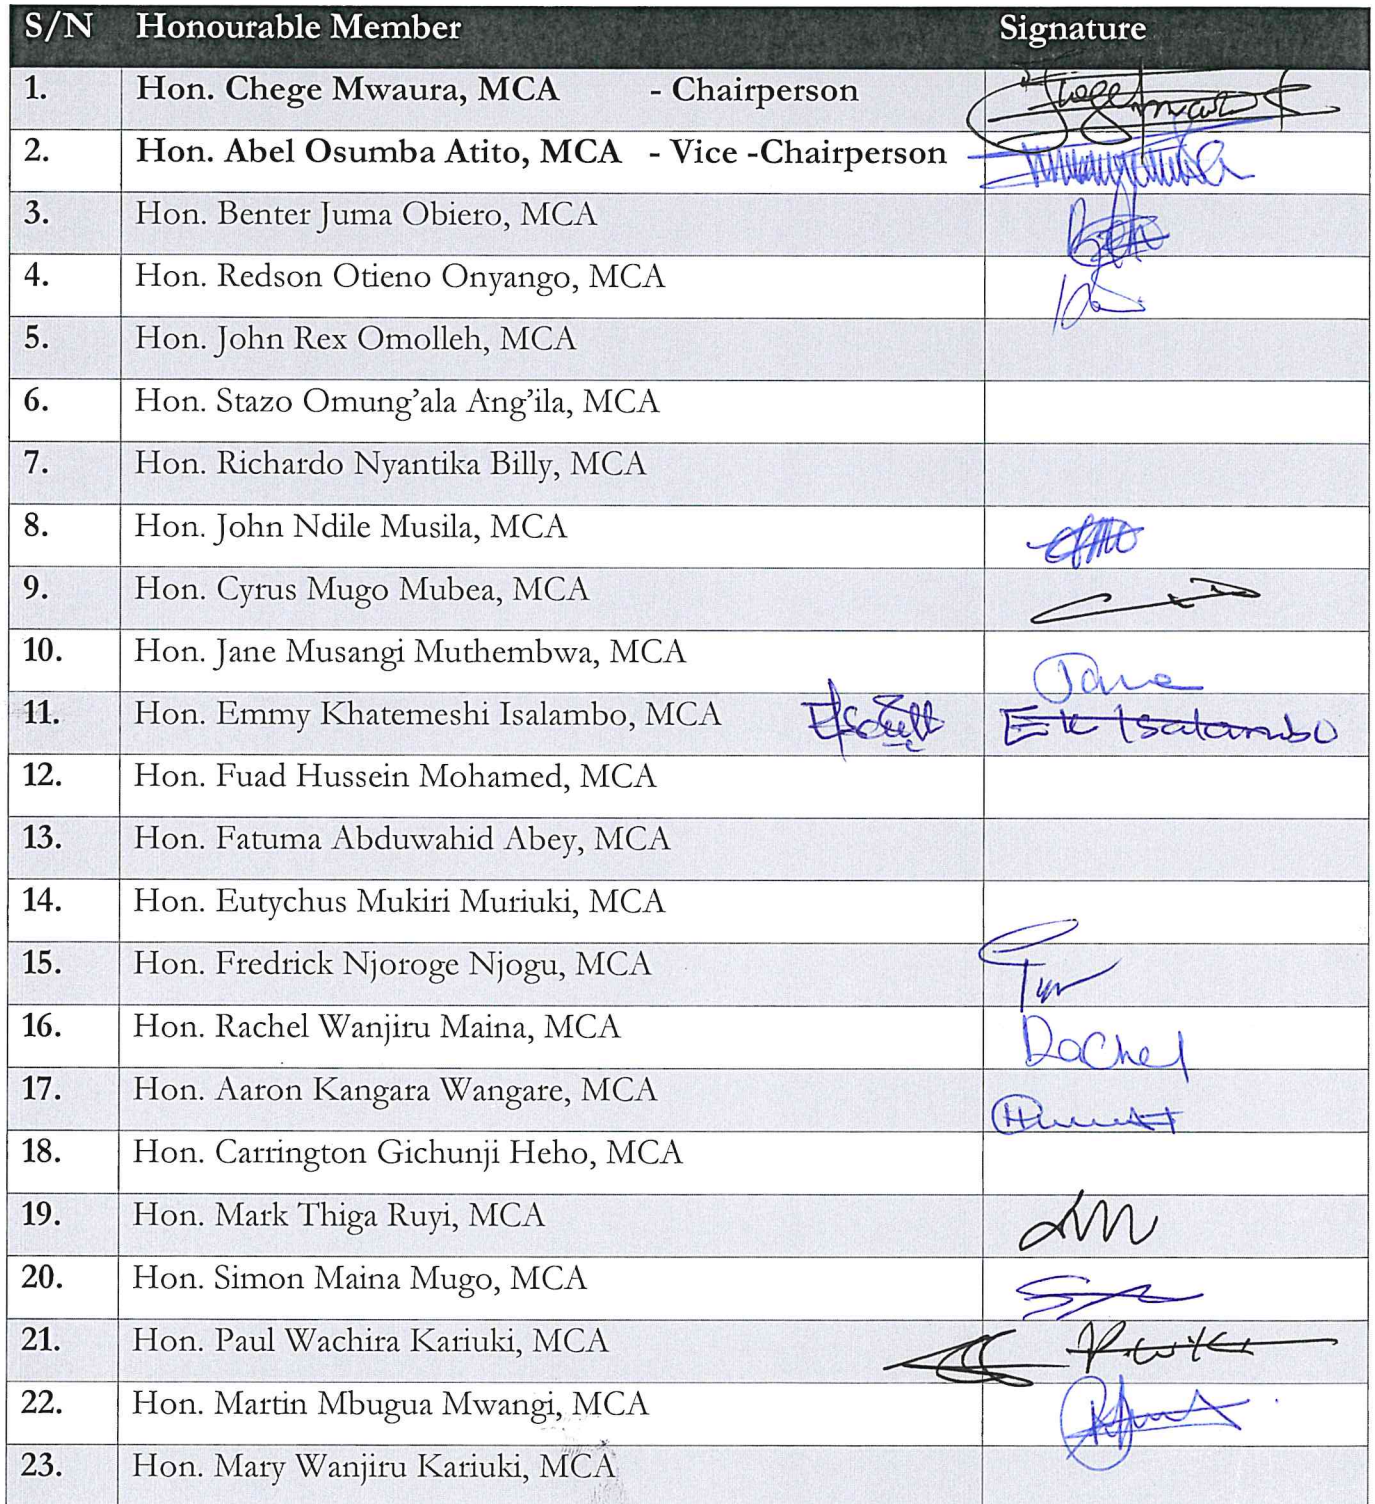 S/N Honourable Member Signature
1. Hon. Chege Mwaura, MCA - Chairperson
2. Hon. Abel Osumba Atito, MCA - Vice -Chairperson
3. Hon. Benter Juma Obiero, MCA
4. Hon. Redson Otieno Onyango, MCA
5. Hon. John Rex Omolleh, MCA
6. Hon. Stazo Omung'ala Ang'ila, MCA
7. Hon. Richardo Nyantika Billy, MCA
8. Hon. John Ndile Musila, MCA
9. Hon. Cyrus Mugo Mubea, MCA
10. Hon. Jane Musangi Muthembwa, MCA Jane
11. Hon. Emmy Khatemeshi Isalambo, MCA EK Isalambo
12. Hon. Fuad Hussein Mohamed, MCA
13. Hon. Fatuma Abduwahid Abey, MCA
14. Hon. Eutychus Mukiri Muriuki, MCA
15. Hon. Fredrick Njoroge Njogu, MCA
16. Hon. Rachel Wanjiru Maina, MCA Rachel
17. Hon. Aaron Kangara Wangare, MCA
18. Hon. Carrington Gichunji Heho, MCA
19. Hon. Mark Thiga Ruyi, MCA
20. Hon. Simon Maina Mugo, MCA
21. Hon. Paul Wachira Kariuki, MCA
22. Hon. Martin Mbugua Mwangi, MCA
23. Hon. Mary Wanjiru Kariuki, MCA